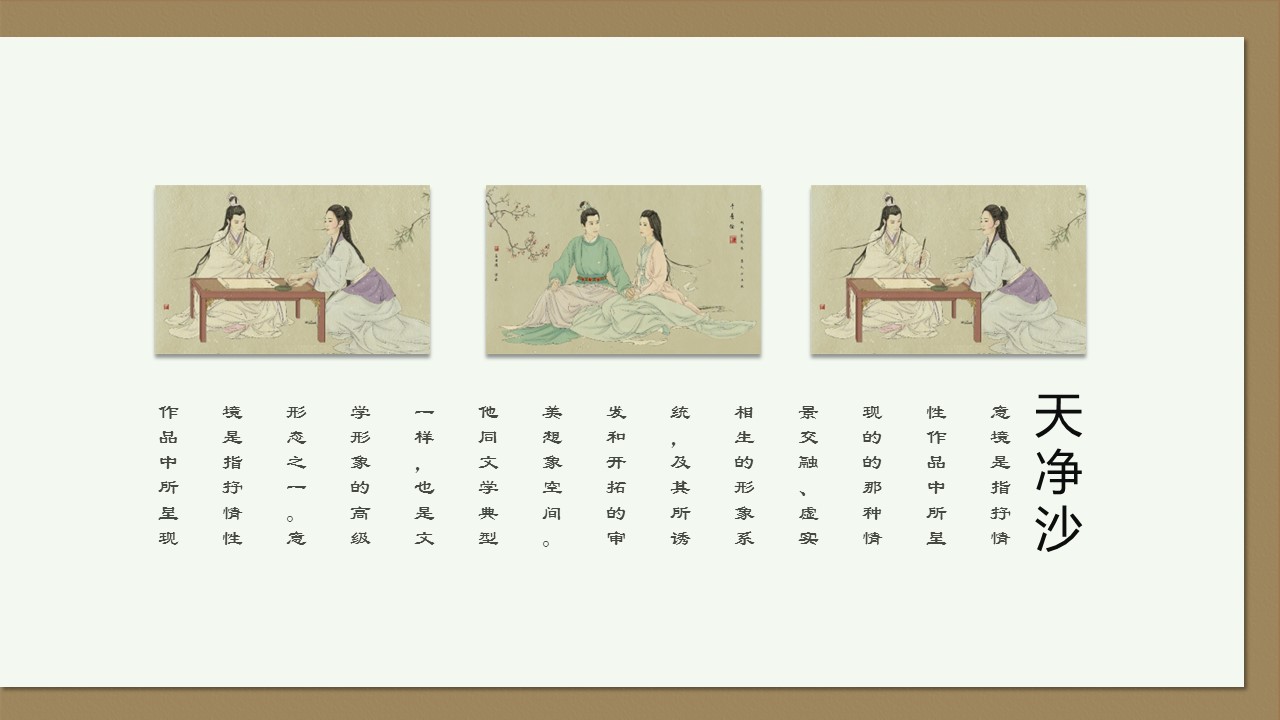 天净沙
意境是指抒情
性作品中所呈
现的的那种情
景交融、虚实
相生的形象系
统，及其所诱
发和开拓的审
美想象空间。
他同文学典型
一样，也是文
学形象的高级
形态之一。意
境是指抒情性
作品中所呈现